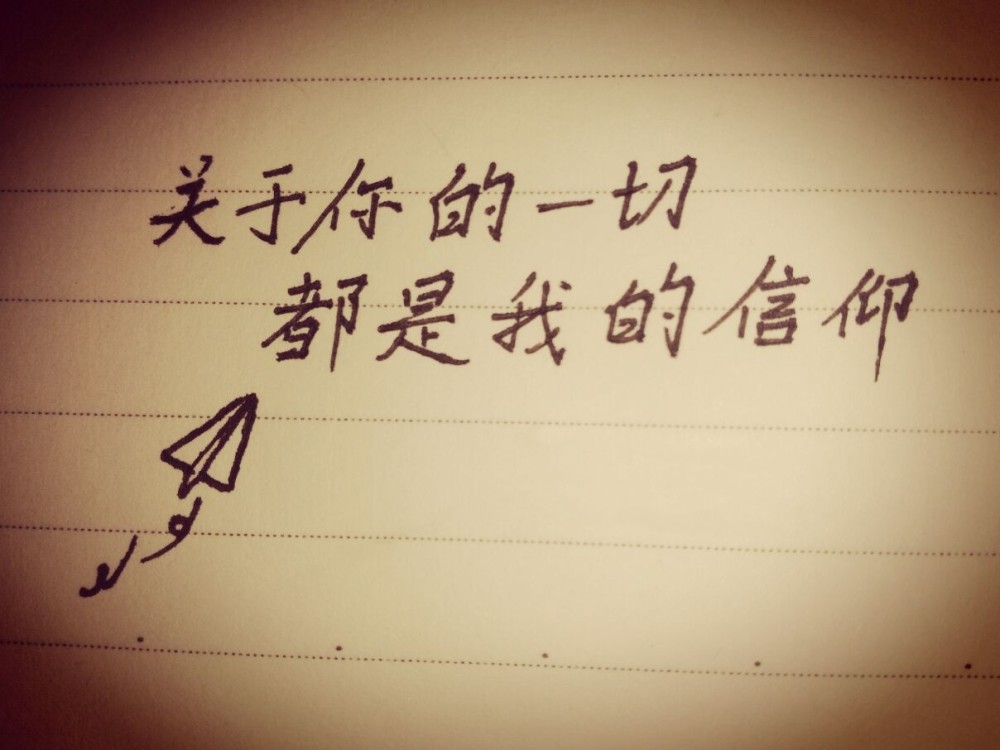 关于你的一切
都是我的信仰